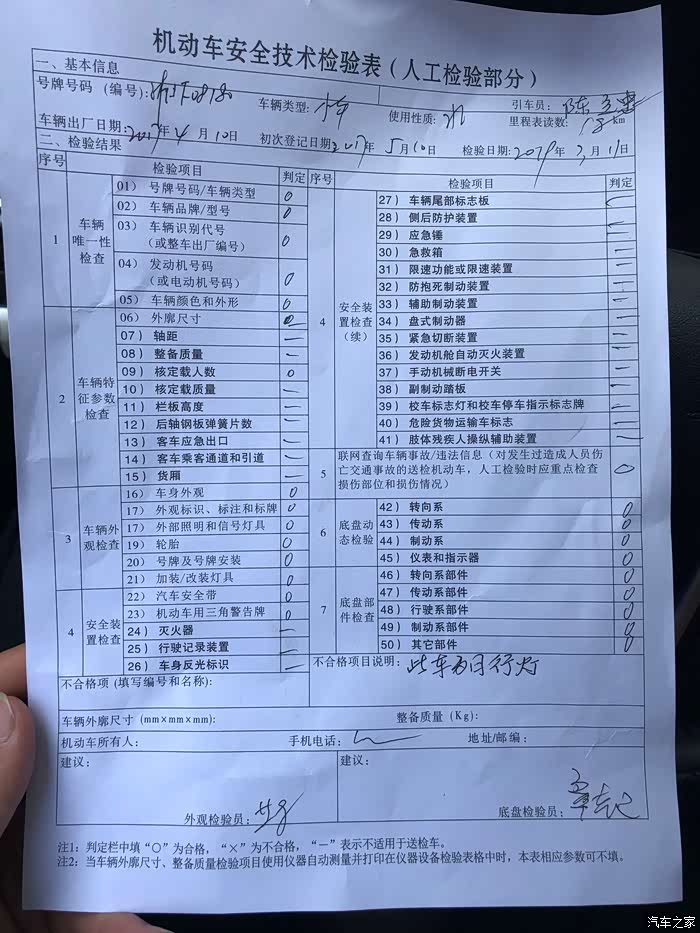 机动车安全技术检验表（人工检验部分）
一、基本信息
号牌号码（编号）: 车辆类型: 小车 使用性质: 引车员:
车辆出厂日期: 2017年 4 月 10日 初次登记日期 2017年 5月10日 检验日期: 2019年 3月11日 里程表读数: km
二、检验结果
序号 检验项目 判定 序号 检验项目 判定
1 车辆唯一性检查
01）号牌号码/车辆类型 O
02）车辆品牌/型号 O
03）车辆识别代号（或整车出厂编号） O
04）发动机号码（或电动机号码） O
05）车辆颜色和外形 O
2 车辆特征参数检查
06）外廓尺寸
07）轴距 —
08）整备质量 —
09）核定载人数 O
10）核定载质量 —
11）栏板高度 —
12）后轴钢板弹簧片数 —
13）客车应急出口 —
14）客车乘客通道和引道 —
15）货厢 —
3 车辆外观检查
16）车身外观 O
17）外观标识、标注和标牌 O
17）外部照明和信号灯具 O
19）轮胎 O
20）号牌及号牌安装 O
21）加装/改装灯具 O
4 安全装置检查
22）汽车安全带 O
23）机动车用三角警告牌 O
24）灭火器 —
25）行驶记录装置 —
26）车身反光标识 —
4 安全装置检查（续）
27）车辆尾部标志板 —
28）侧后防护装置 —
29）应急锤 —
30）急救箱 —
31）限速功能或限速装置 —
32）防抱死制动装置 —
33）辅助制动装置 —
34）盘式制动器 —
35）紧急切断装置 —
36）发动机舱自动灭火装置 —
37）手动机械断电开关 —
38）副制动踏板 —
39）校车标志灯和校车停车指示标志牌 —
40）危险货物运输车标志 —
41）肢体残疾人操纵辅助装置 —
5 联网查询车辆事故/违法信息（对发生过造成人员伤亡交通事故的送检机动车，人工检验时应重点检查损伤部位和损伤情况） O
6 底盘动态检验
42）转向系 O
43）传动系 O
44）制动系 O
45）仪表和指示器 O
7 底盘部件检查
46）转向系部件 O
47）传动系部件 O
48）行驶系部件 O
49）制动系部件 O
50）其它部件 O
不合格项（填写编号和名称）: 不合格项目说明: 此车为日行灯
车辆外廓尺寸（mm×mm×mm）: 整备质量（Kg）:
机动车所有人: 手机电话: 地址/邮编:
建议: 建议:
外观检验员: 底盘检验员:
注1: 判定栏中填“○”为合格，“×”为不合格，“—”表示不适用于送检车。
注2: 当车辆外廓尺寸、整备质量检验项目使用仪器自动测量并打印在仪器设备检验表格中时，本表相应参数可不填。
汽车之家